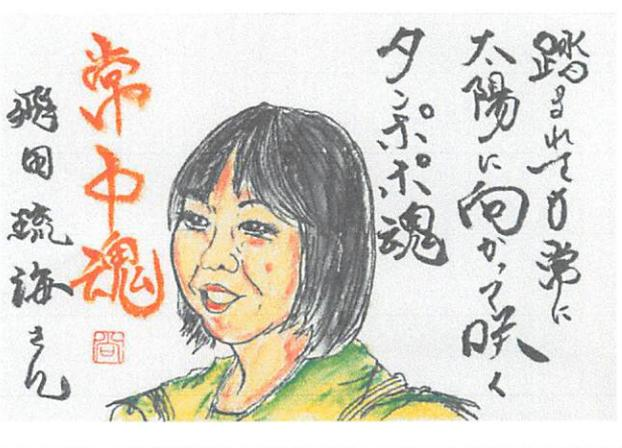 踏まれても常に
太陽に向かって咲く
タンポポ魂
常中魂
飛田琉海さん
尚